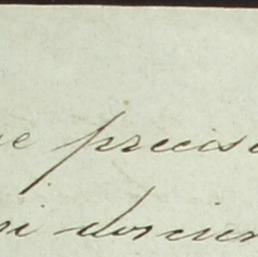 e precis
ni docum